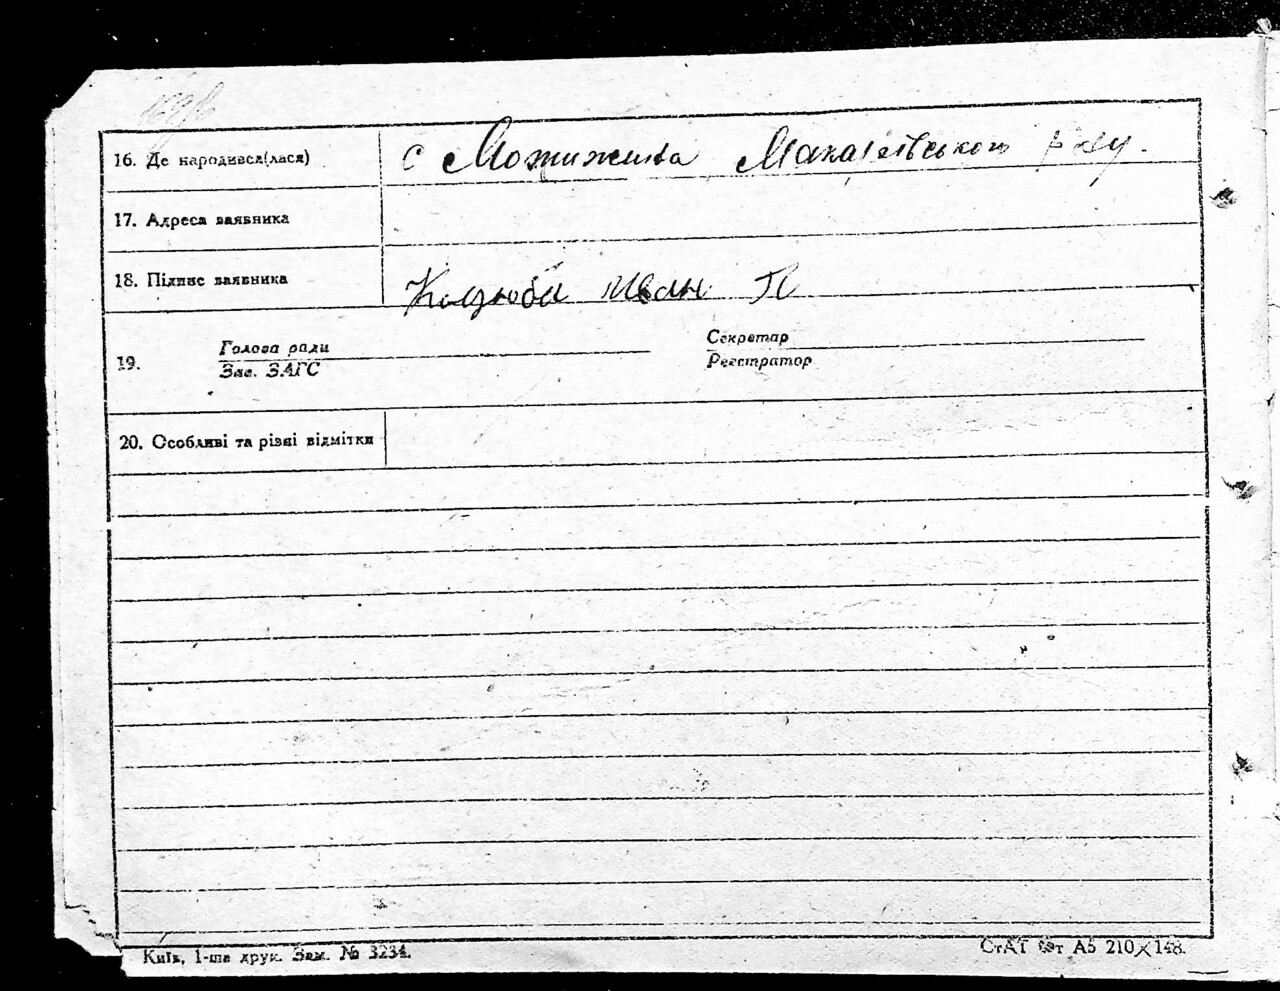 16. Де народився(лася) с Мотижина Макарівського р-ну.
17. Адреса заявника
18. Підпис заявника Кодзюба Иван П
19. Голова ради Секретар
Зав. ЗАГС Реєстратор
20. Особливі та різні відмітки
Київ, 1-ша друк. Зам. № 3234. СтАТ Фт А5 210×148.